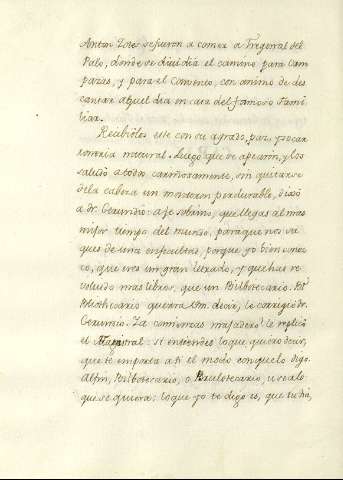 Anton Zotes se fueron a comer a Fregenal del
Palo, donde se dividia el camino para Cam-
pazas, y para el Convento, con animo de des
cansar aquel dia en casa del famoso Fami-
liar.
Recibióles este con su agrado, paz, y socar
roneria natural. Luego que se apearon, y los
saludó a todos cariñosamente, sin quitarse
de la cabeza un monteron perdurable, dixo
a Fr. Gerundio: a fe sobrino, que llegas al mas
mijor tiempo del mundo, para que nos sa
ques de una enfecultá, porque yo bien conoz
co, que eres un gran letrado, y que has re
voluido mas libros, que un Bilbotecario. Bi
bliothecario querrá Vm. decir, le corrigió Fr.
Gerundio. Ya comienzas majadero? le replicó
el Magistral: si entiendes lo que quiero decir,
que te importa a ti el modo con que lo digo.
Alfin, Bilbotecario, o Brulotecario, u sea lo
que se quiera: lo que yo te digo es, que tu tia,